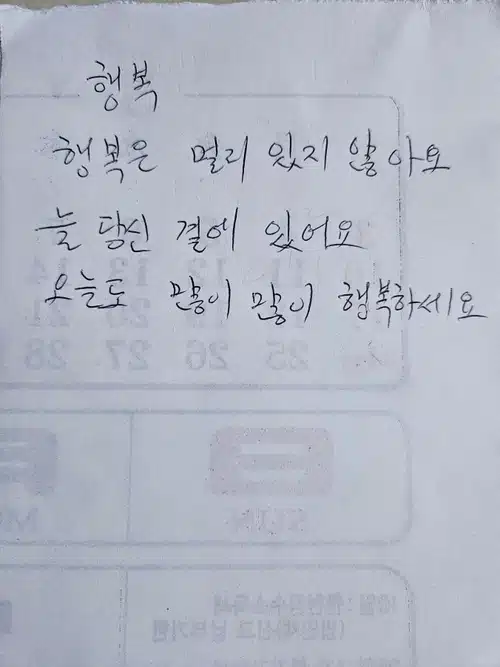 행복
행복은 멀리 있지 않아요
늘 당신 곁에 있어요
오늘도 많이 많이 행복하세요
25 26 27 28
SUN